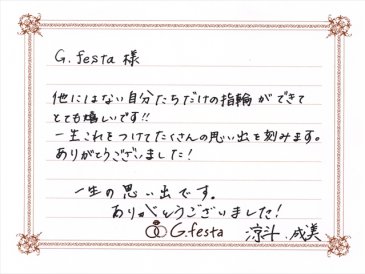 G.festa 様
他にはない自分たちだけの指輪ができて
とても嬉しいです!!
一生これをつけてたくさんの思い出を刻みます。
ありがとうございました!
一生の思い出です。
ありがとうございました!
G.festa 涼斗.成美